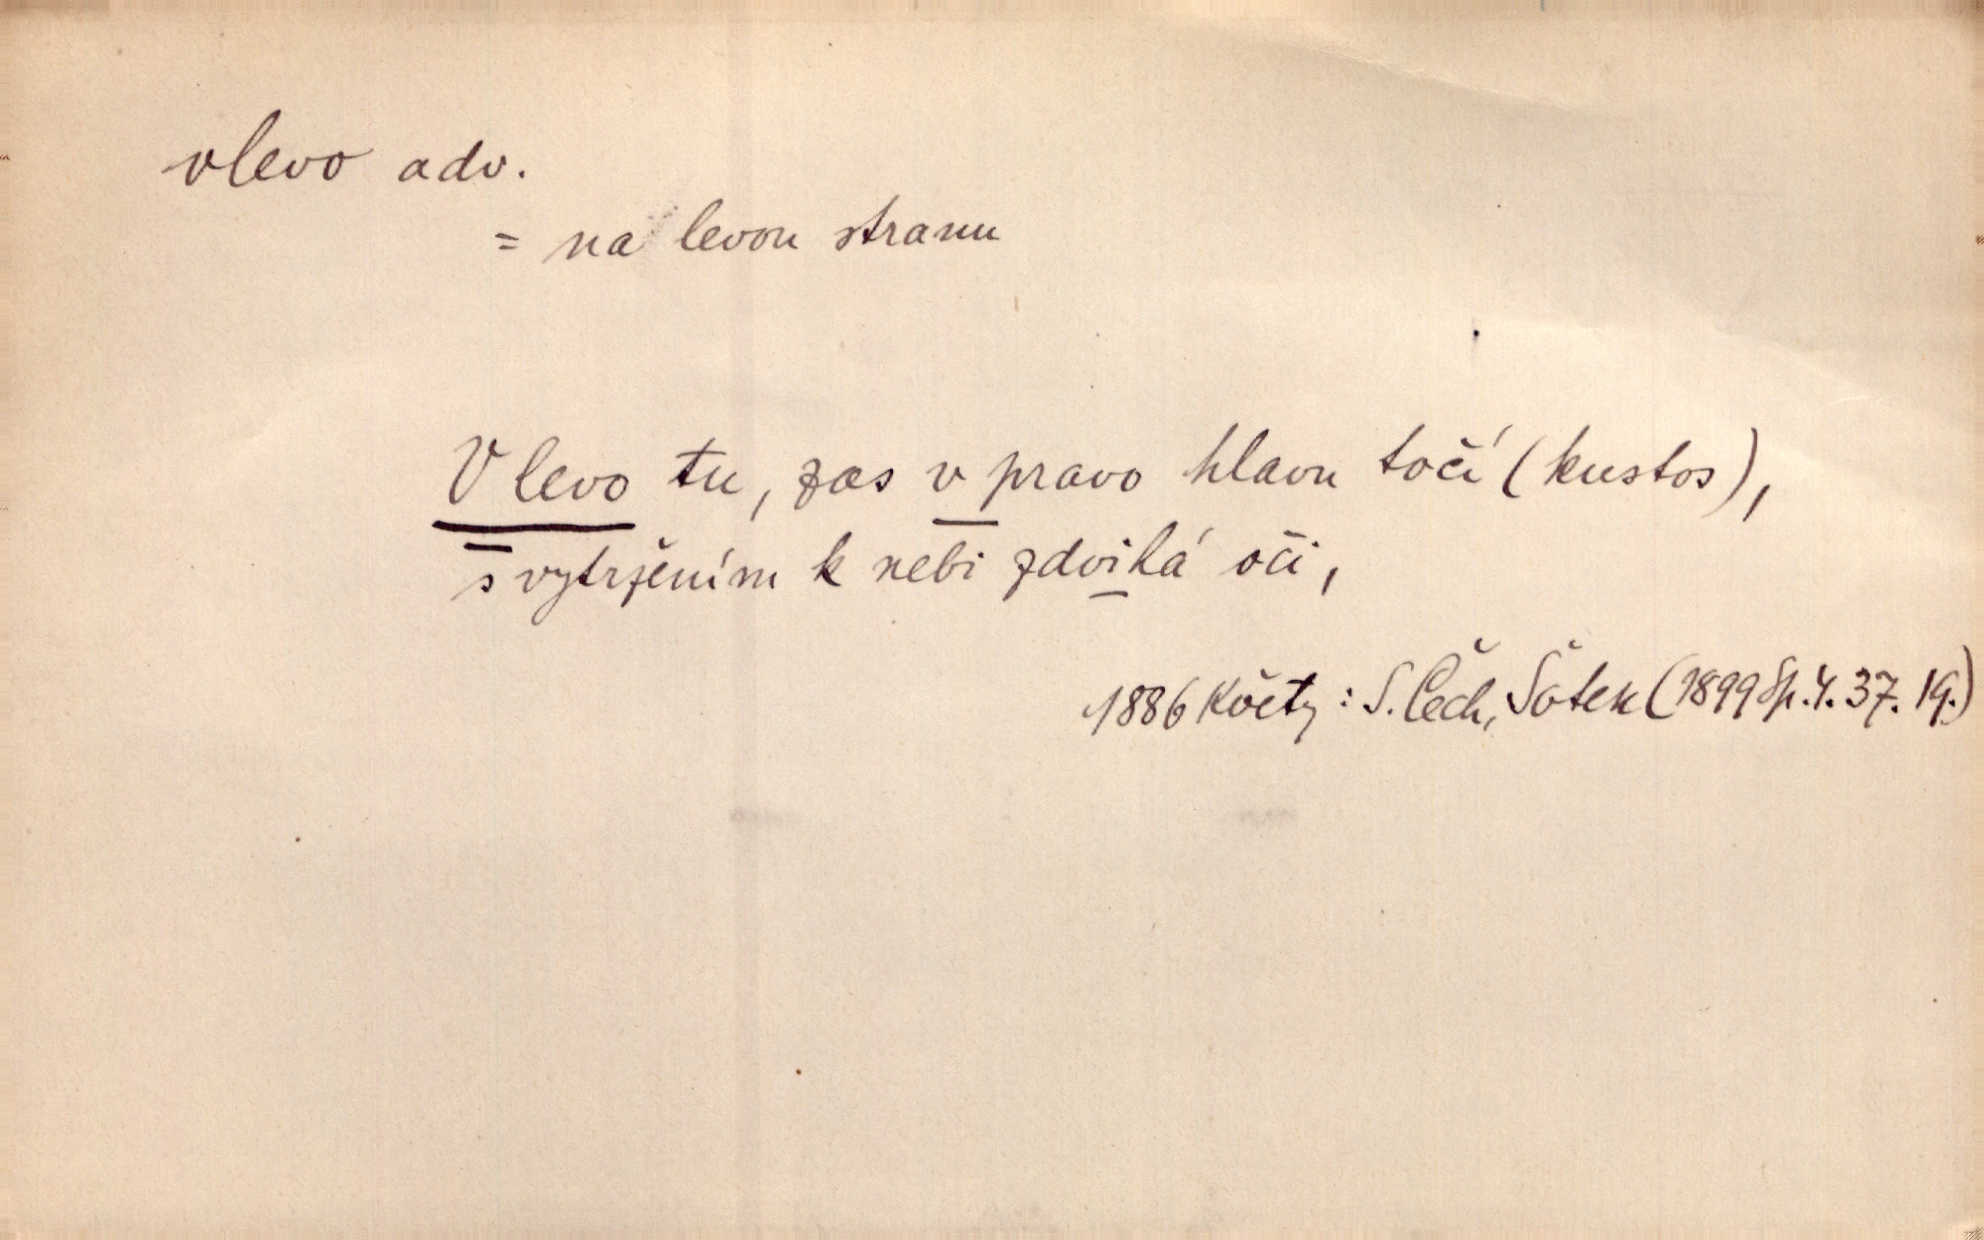 vlevo adv.
= na levou stranu
V levo tu, zas v pravo hlavu točí (kustos),
s vytržením k nebi zdvihá oči,
1886 Květy: S. Čech, Šotek (1899 Sp. 4. 37. 19.)